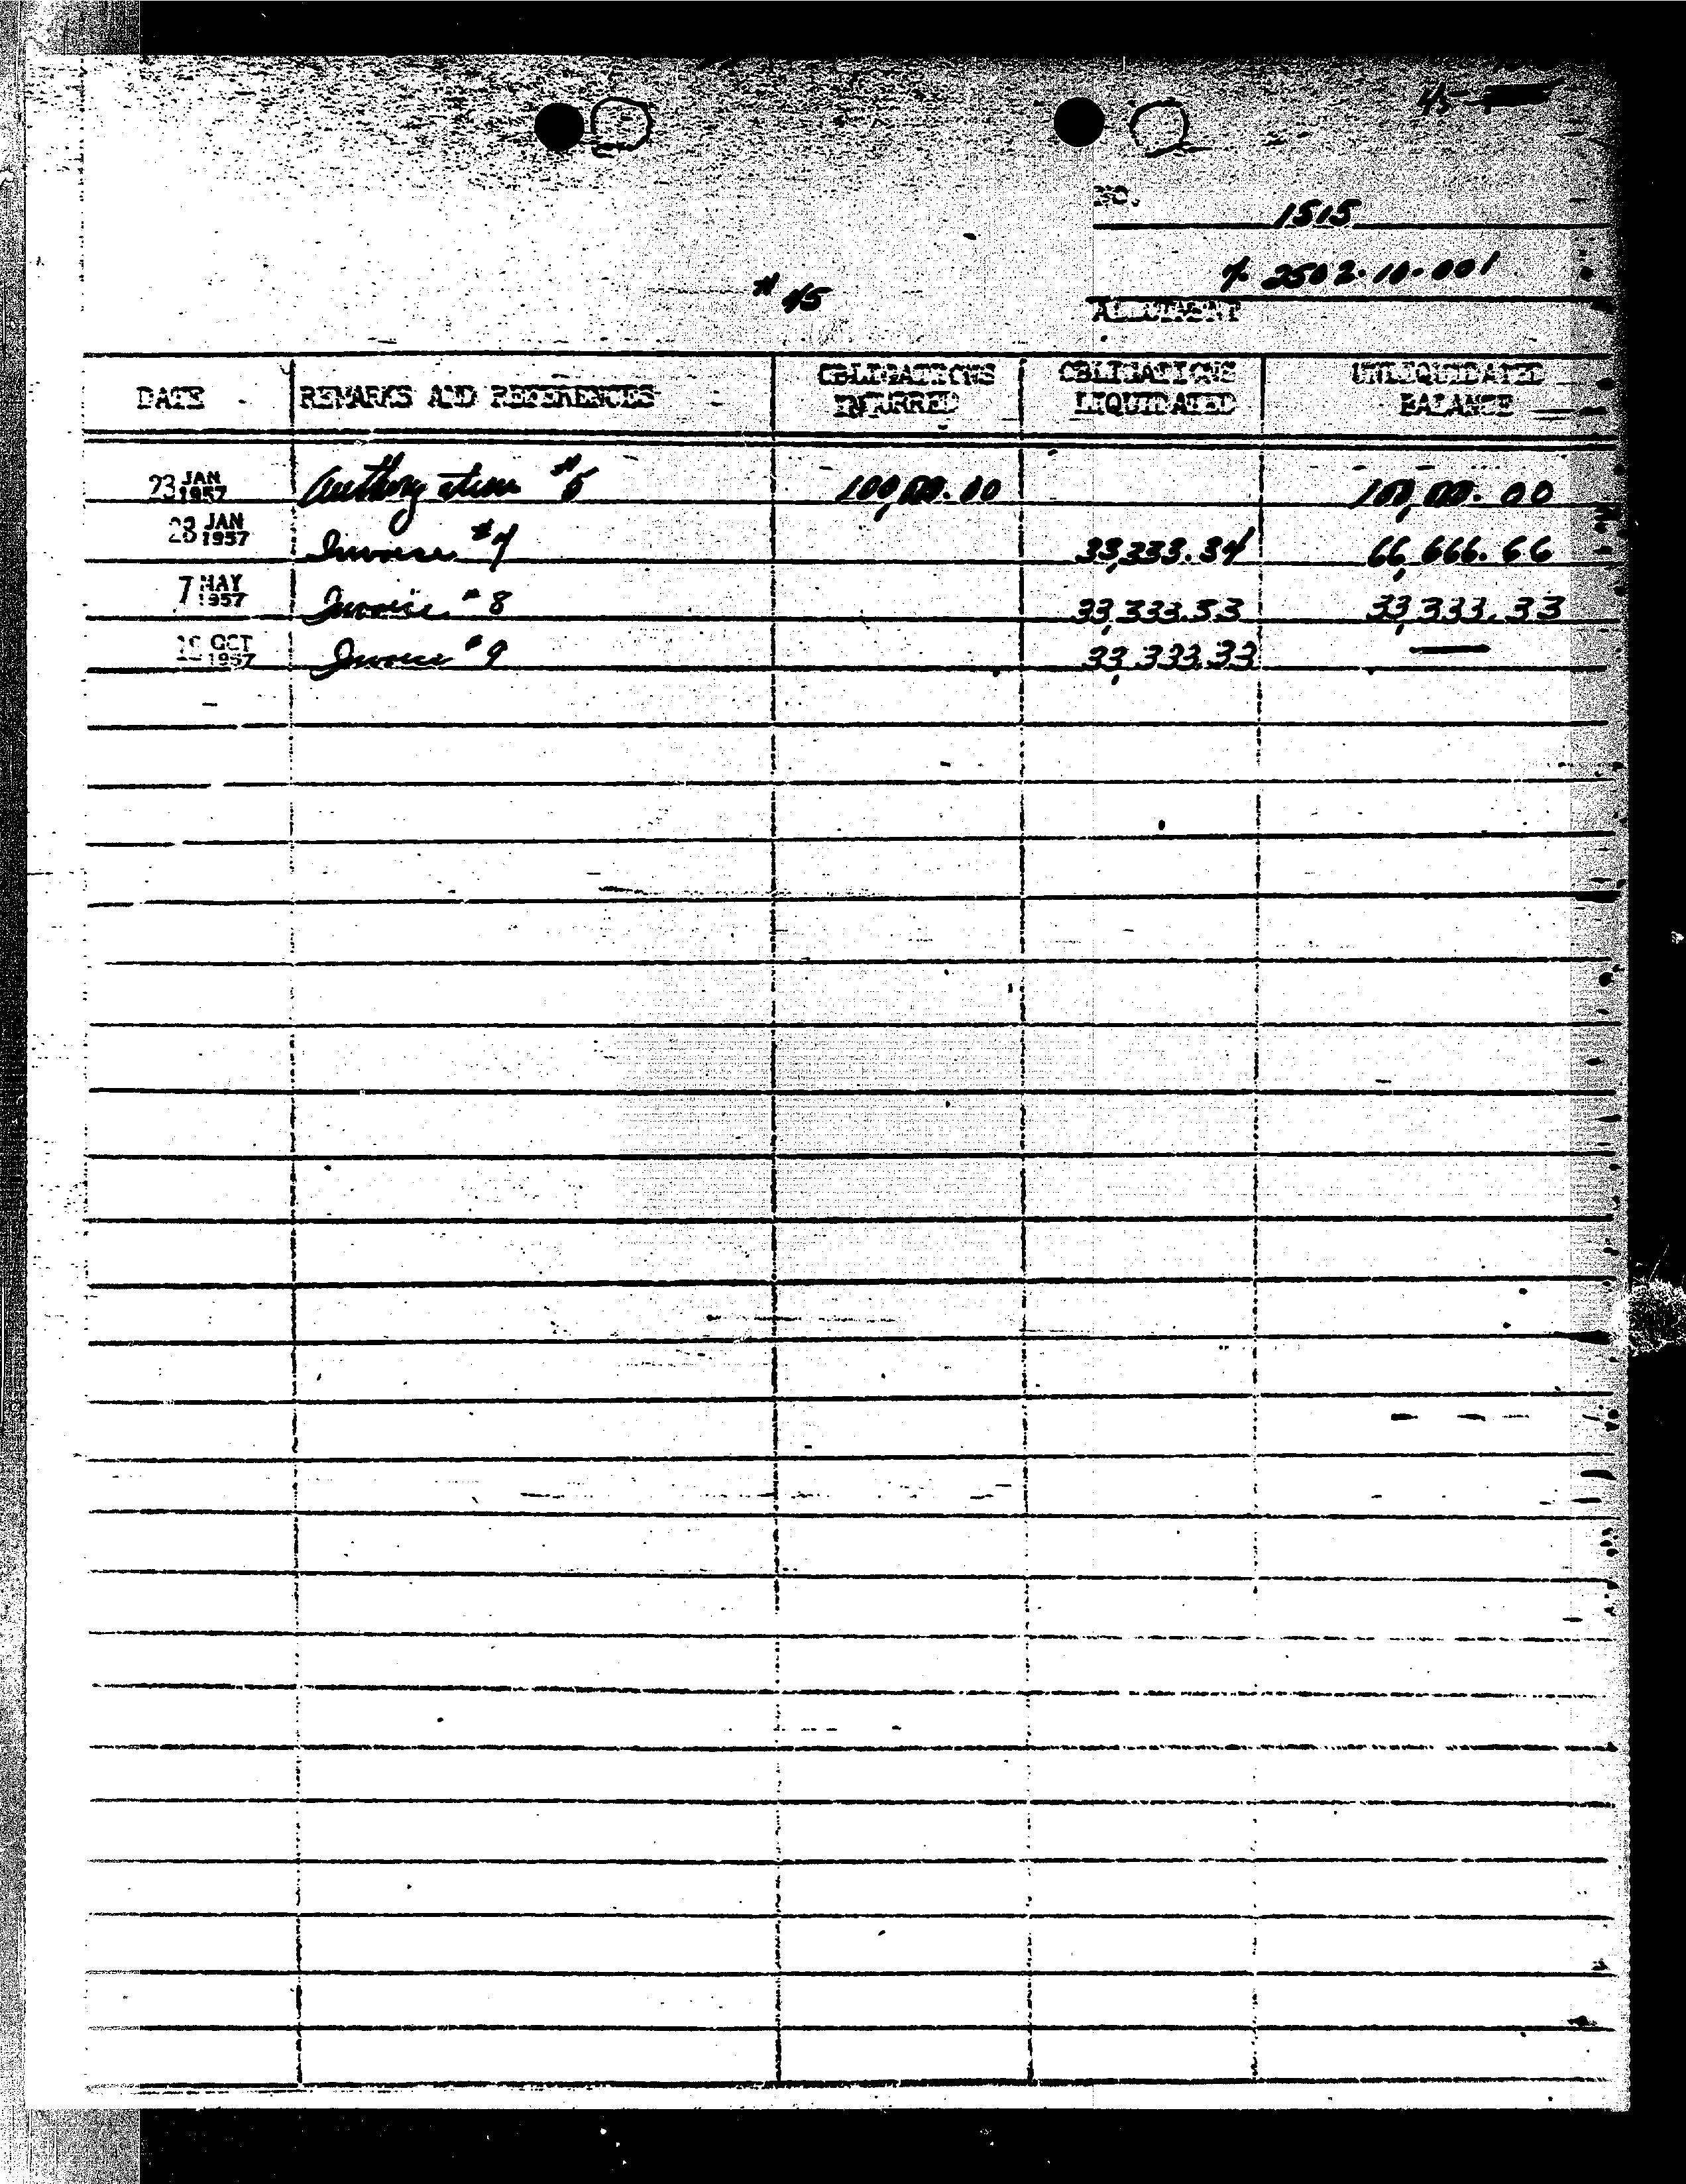 45
NO. 1515
# 45
% 2502-10-001
ALLOTMENT
DATE REMARKS AND REFERENCES OBLIGATIONS INCURRED OBLIGATIONS LIQUIDATED UNLIQUIDATED BALANCE
23 JAN 1957 #5 100,000.00 100,000.00
28 JAN 1957 Invoice #7 33,333.34 66,666.66
7 MAY 1957 Invoice #8 33,333.33 33,333.33
OCT 1957 Invoice #9 33,333.33 —